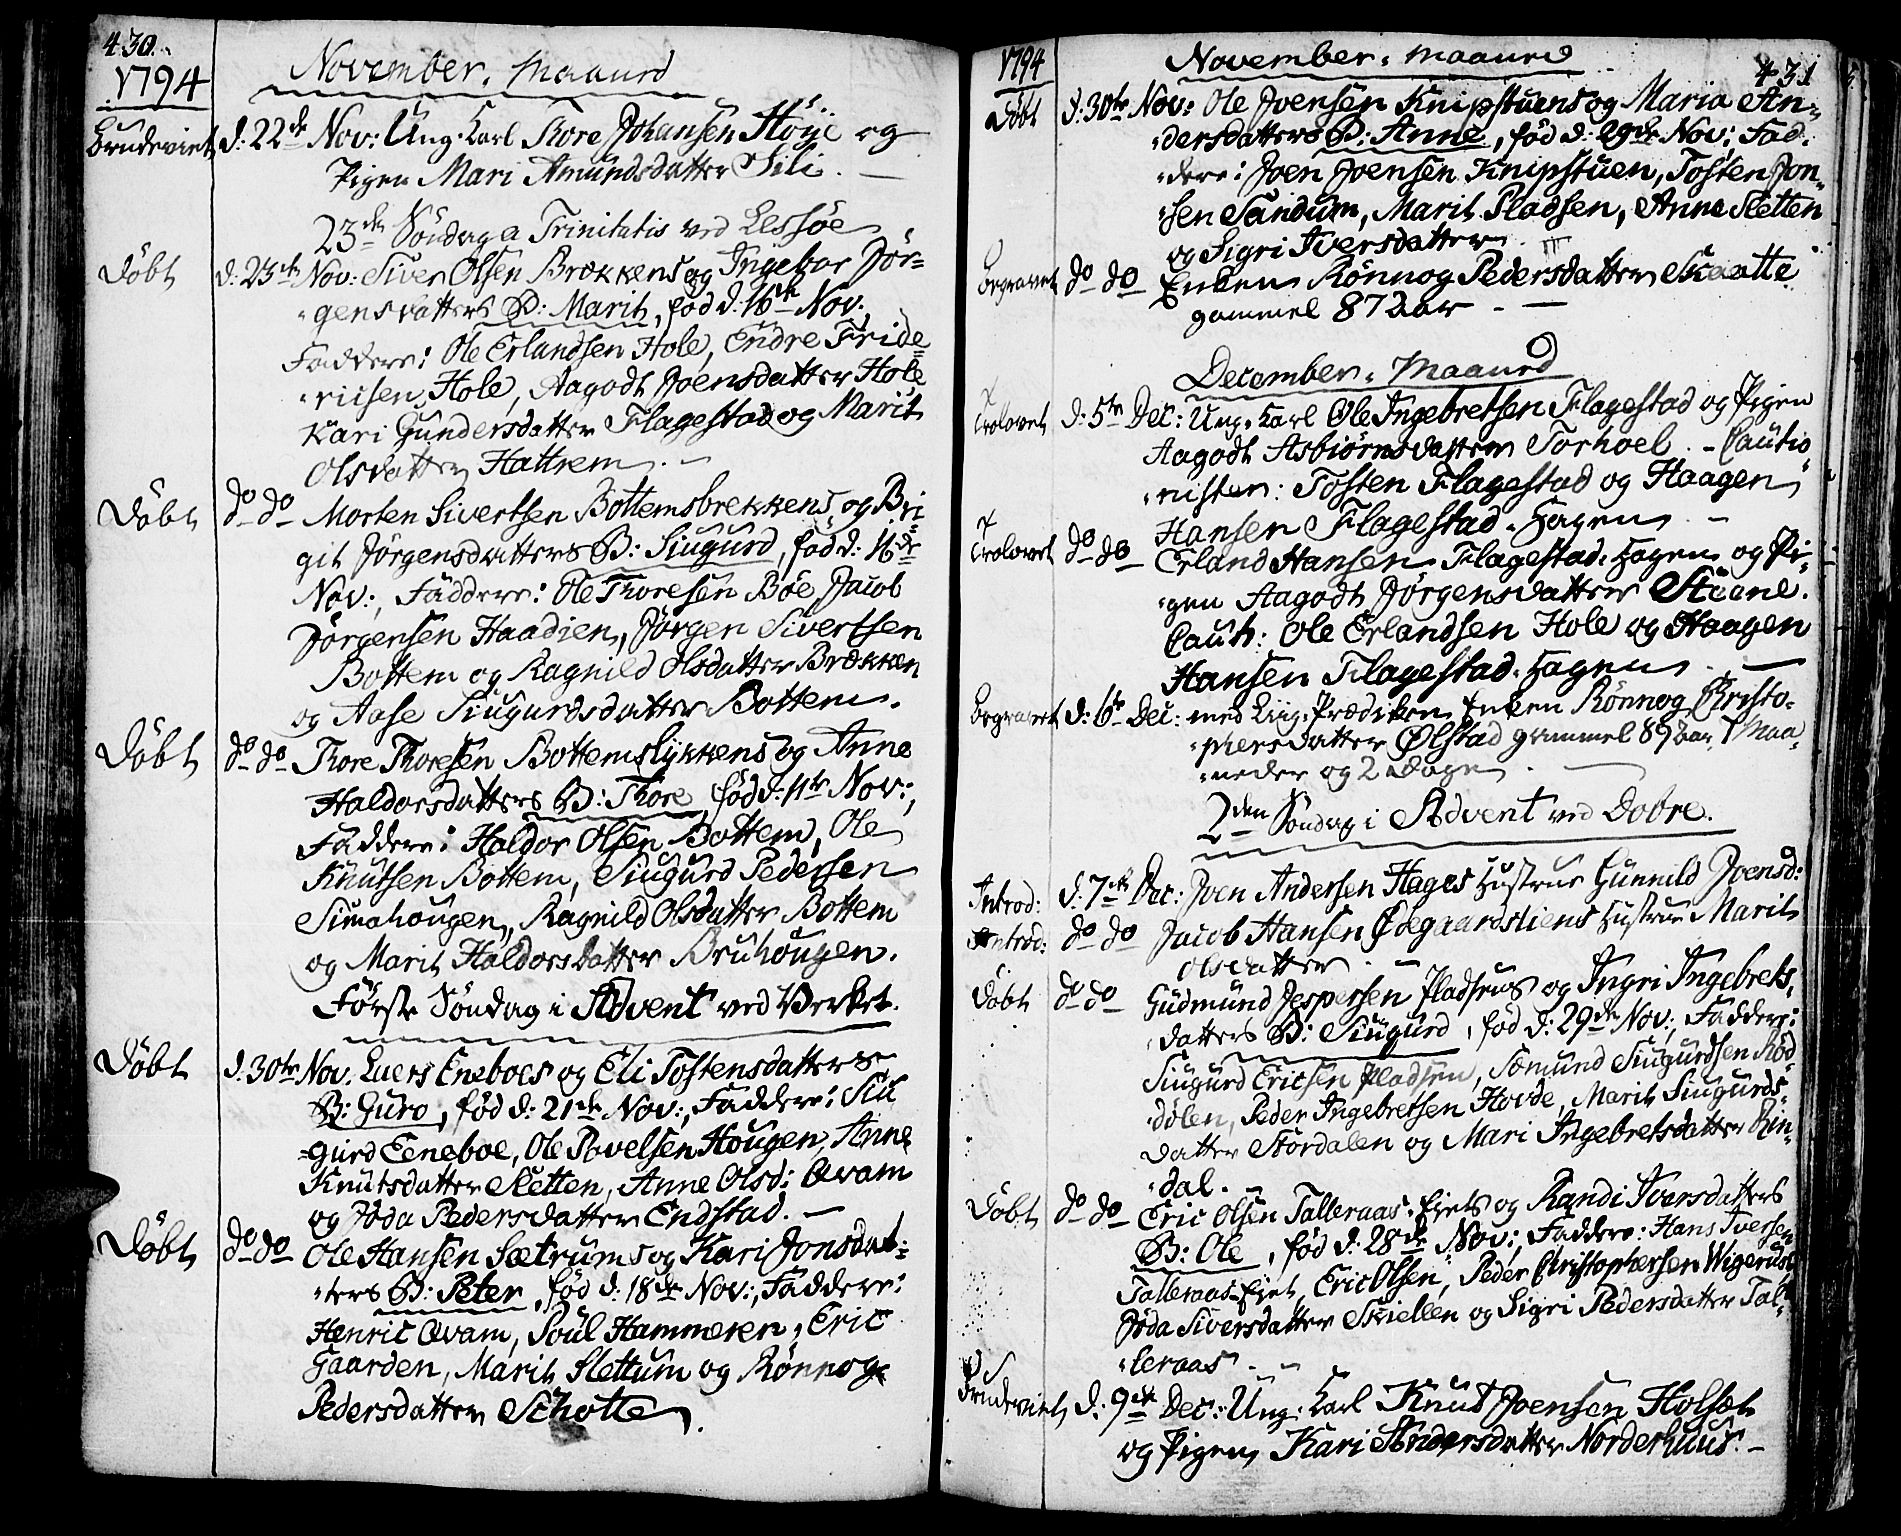 430.
1794
November. Maaned
Brudeviet d: 22de Nov: Ung. Karl Thore Johansen Höÿe og
Pigen Mari Amundsdatter Sili. —
23de Söndag a Trinitatis ved Lessöe
Döbt d: 23de Nov: Siver Olsen Brækkens og Ingebor Jör-
-gensdatters B: Marit, fød d: 16de Nov.
Faddere: Ole Erlandsen Hole, Endre Fride-
-ricsen Hole, Aagodt Joensdatter Hole
Kari Gundersdatter Flagestad og Marit
Olsdatter Hattrem. —
Döbt do do Morten Sivertsen Bottemsbrekkens og Bri-
git Jörgensdatters B: Siugurd, fød d: 16de
Nov:, Faddere: Ole Thoresen Böe, Jacob
Jörgensen Haadien, Jörgen Sivertsen
Bottem og Ragnild Olsdatter Brækken
og Aase Siugurdsdatter Bottem.
Döbt do do Thore Thoresen Bottemslykkens og Anne
Haldorsdatters B: Thore, fød d: 11te Nov:,
Faddere: Haldor Olsen Bottem, Ole
Knutsen Bottem, Siugurd Pedersen
Simahougen, Ragnild Olsdatter Bottem
og Marit Haldorsdatter Bruhougen.
Første Söndag i Advent ved Verket.
Döbt d: 30te Nov. Luers Eneboes og Eli Tostensdatters
B: Guro, fød d: 21de Nov:, Faddere: Siu
-gurd Eeneboe, Ole Povelsen Hougen, Anne
Knutsdatter Sletten, Anne Olsd: Qvam
og Jøda Pedersdatter Endstad. —
Döbt do do Ole Hansen Sætrums og Kari Jonsdat-
-ters B: Peter, fød d: 18de Nov:, Faddere:
Henric Qvam, Poul Hammeren, Eric
Gaarden, Marit Slettum og Rönnog
Pedersdatter Schotte.
1794
November. Maaned
431
Döbt d: 30te Nov: Ole Joensen Knipstuens og Maria An-
-dersdatters B: Anne, fød d: 29de Nov:, Fad-
-dere: Joen Joensen Knipstuen, Tosten Jon-
-sen Sandum, Marit Pladsen, Anne Sletten
og Sigri Iversdatter.
Begravet do do Enken Rönnog Pedersdatter Skaatte
gammel 87 aar. —
December. Maaned
Trolovet d: 5te Dec: Ung. Karl Ole Ingebretsen Flagestad og Pigen
Aagodt Asbiörnsdatter Torhoel. - Cautio
-nister: Tosten Flagestad og Haagen
Hansen Flagestad-hagen —
Trolovet do do Erland Hansen Flagestad-hagen og Pi-
-gen Aagodt Jörgensdatter Steene.
Caut: Ole Erlandsen Hole og Haagen
Hansen Flagestad-hagen. —
Begravet d: 6te Dec: med Liig-Prædiken Enken Rönnog Christo-
-phersdatter Ølstad gammel 89 aar, 7 Maa-
-neder og 2 Dage. —
2den Söndag i Advent ved Dobre.
Introd: d: 7de Dec: Joen Andersen Hages Hustrue Gunnild Joensd:
Introd: do do Jacob Hansen Ødegaardsliens Hustrue Marit
Olsdatter. —
Döbt do do Gudmund Jespersen Pladsens og Ingri Ingebrets-
-datters B: Siugurd, fød d: 29de Nov:, Faddere:
Siugurd Ericsen Pladsen, Sæmund Siugurdsen Röd-
-dölen, Peder Ingebretsen Hovde, Marit Siugurds-
datter Stordalen og Mari Ingebretsdatter Rin-
-dal. —
Döbt do do Eric Olsen Talleraas-Ejets og Randi Iversdatters
B: Ole, fød d: 28de Nov:, Faddere: Hans Iversen
Talleraas-Ejet, Eric Olsen, Peder Christophersen Wigerust
Jøda Siversdatter Skiellen og Sigri Pedersdatter Tal-
-leraas. —
Brudeviet d: 9de Dec: Ung. Karl Knut Joensen Holset
og Pigen Kari Andersdatter Norderhuus. —